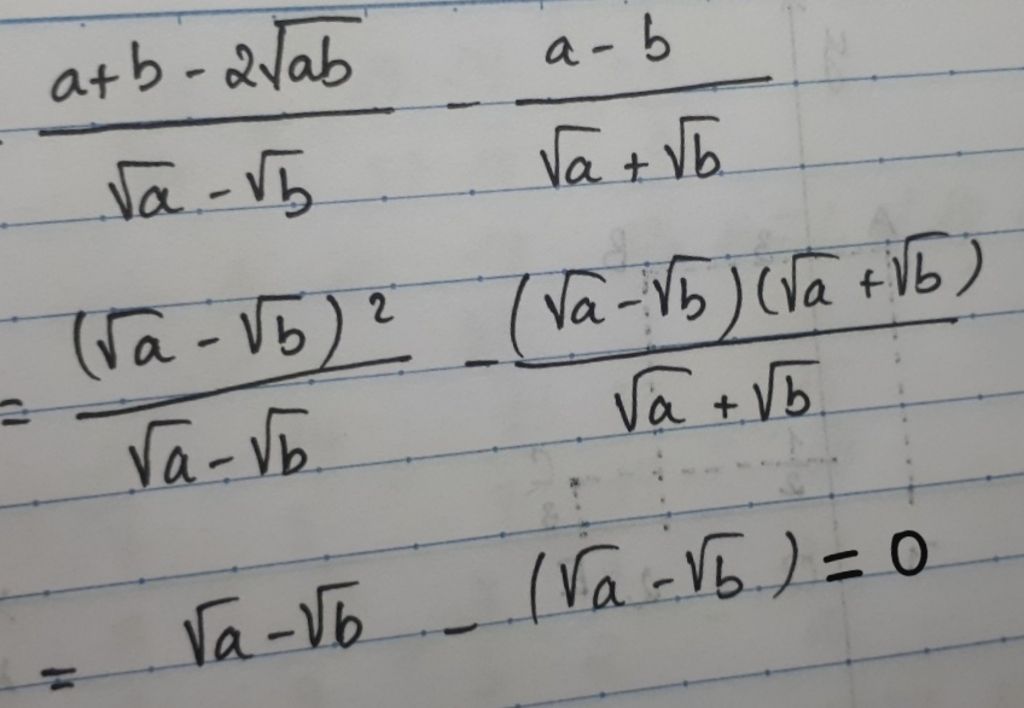 (a+b-2√(ab))/(√a-√b) - (a-b)/(√a+√b)
= (√a-√b)²/(√a-√b) - (√a-√b)(√a+√b)/(√a+√b)
= √a-√b - (√a-√b) = 0